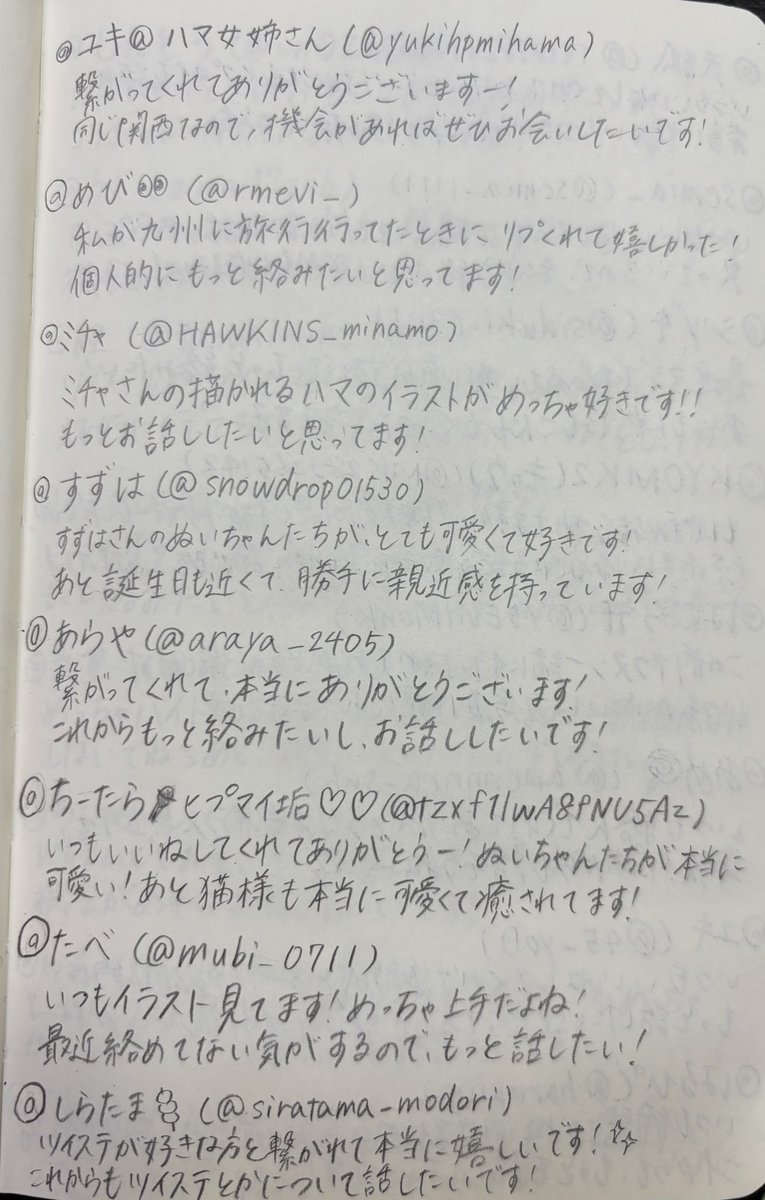 @ユキ@ハマ女姉さん(@yukihpmihama)
繋がってくれてありがとうございますー!
同じ関西なので、機会があればぜひお会いしたいです!
@めび (@rmevi_)
私が九州に旅行行ってたときにリプくれて嬉しかった!
個人的にもっと絡みたいと思ってます!
@ミチャ(@HAWKINS_minamo)
ミチャさんの描かれるハマのイラストがめっちゃ好きです!!
もっとお話ししたいと思ってます!
@すずは(@snowdrop01530)
すずはさんのぬいちゃんたちが、とても可愛くて好きです!
あと誕生日も近くて、勝手に親近感を持っています!
@あらや(@araya_2405)
繋がってくれて、本当にありがとうございます!
これからもっと絡みたいし、お話ししたいです!
@ちーたら🎤ヒプマイ垢♡♡(@tzxf1lwA8PNU5Az)
いつもいいねしてくれてありがとうー!ぬいちゃんたちが本当に
可愛い!あと猫様も本当に可愛くて癒されてます!
@たべ(@mubi_0711)
いつもイラスト見てます!めっちゃ上手だよね!
最近絡めてない気がするので、もっと話したい!
@しらたま🍡(@siratama_modori)
ツイステが好きな方と繋がれて本当に嬉しいです!☆☆
これからもツイステとかについて話したいです!